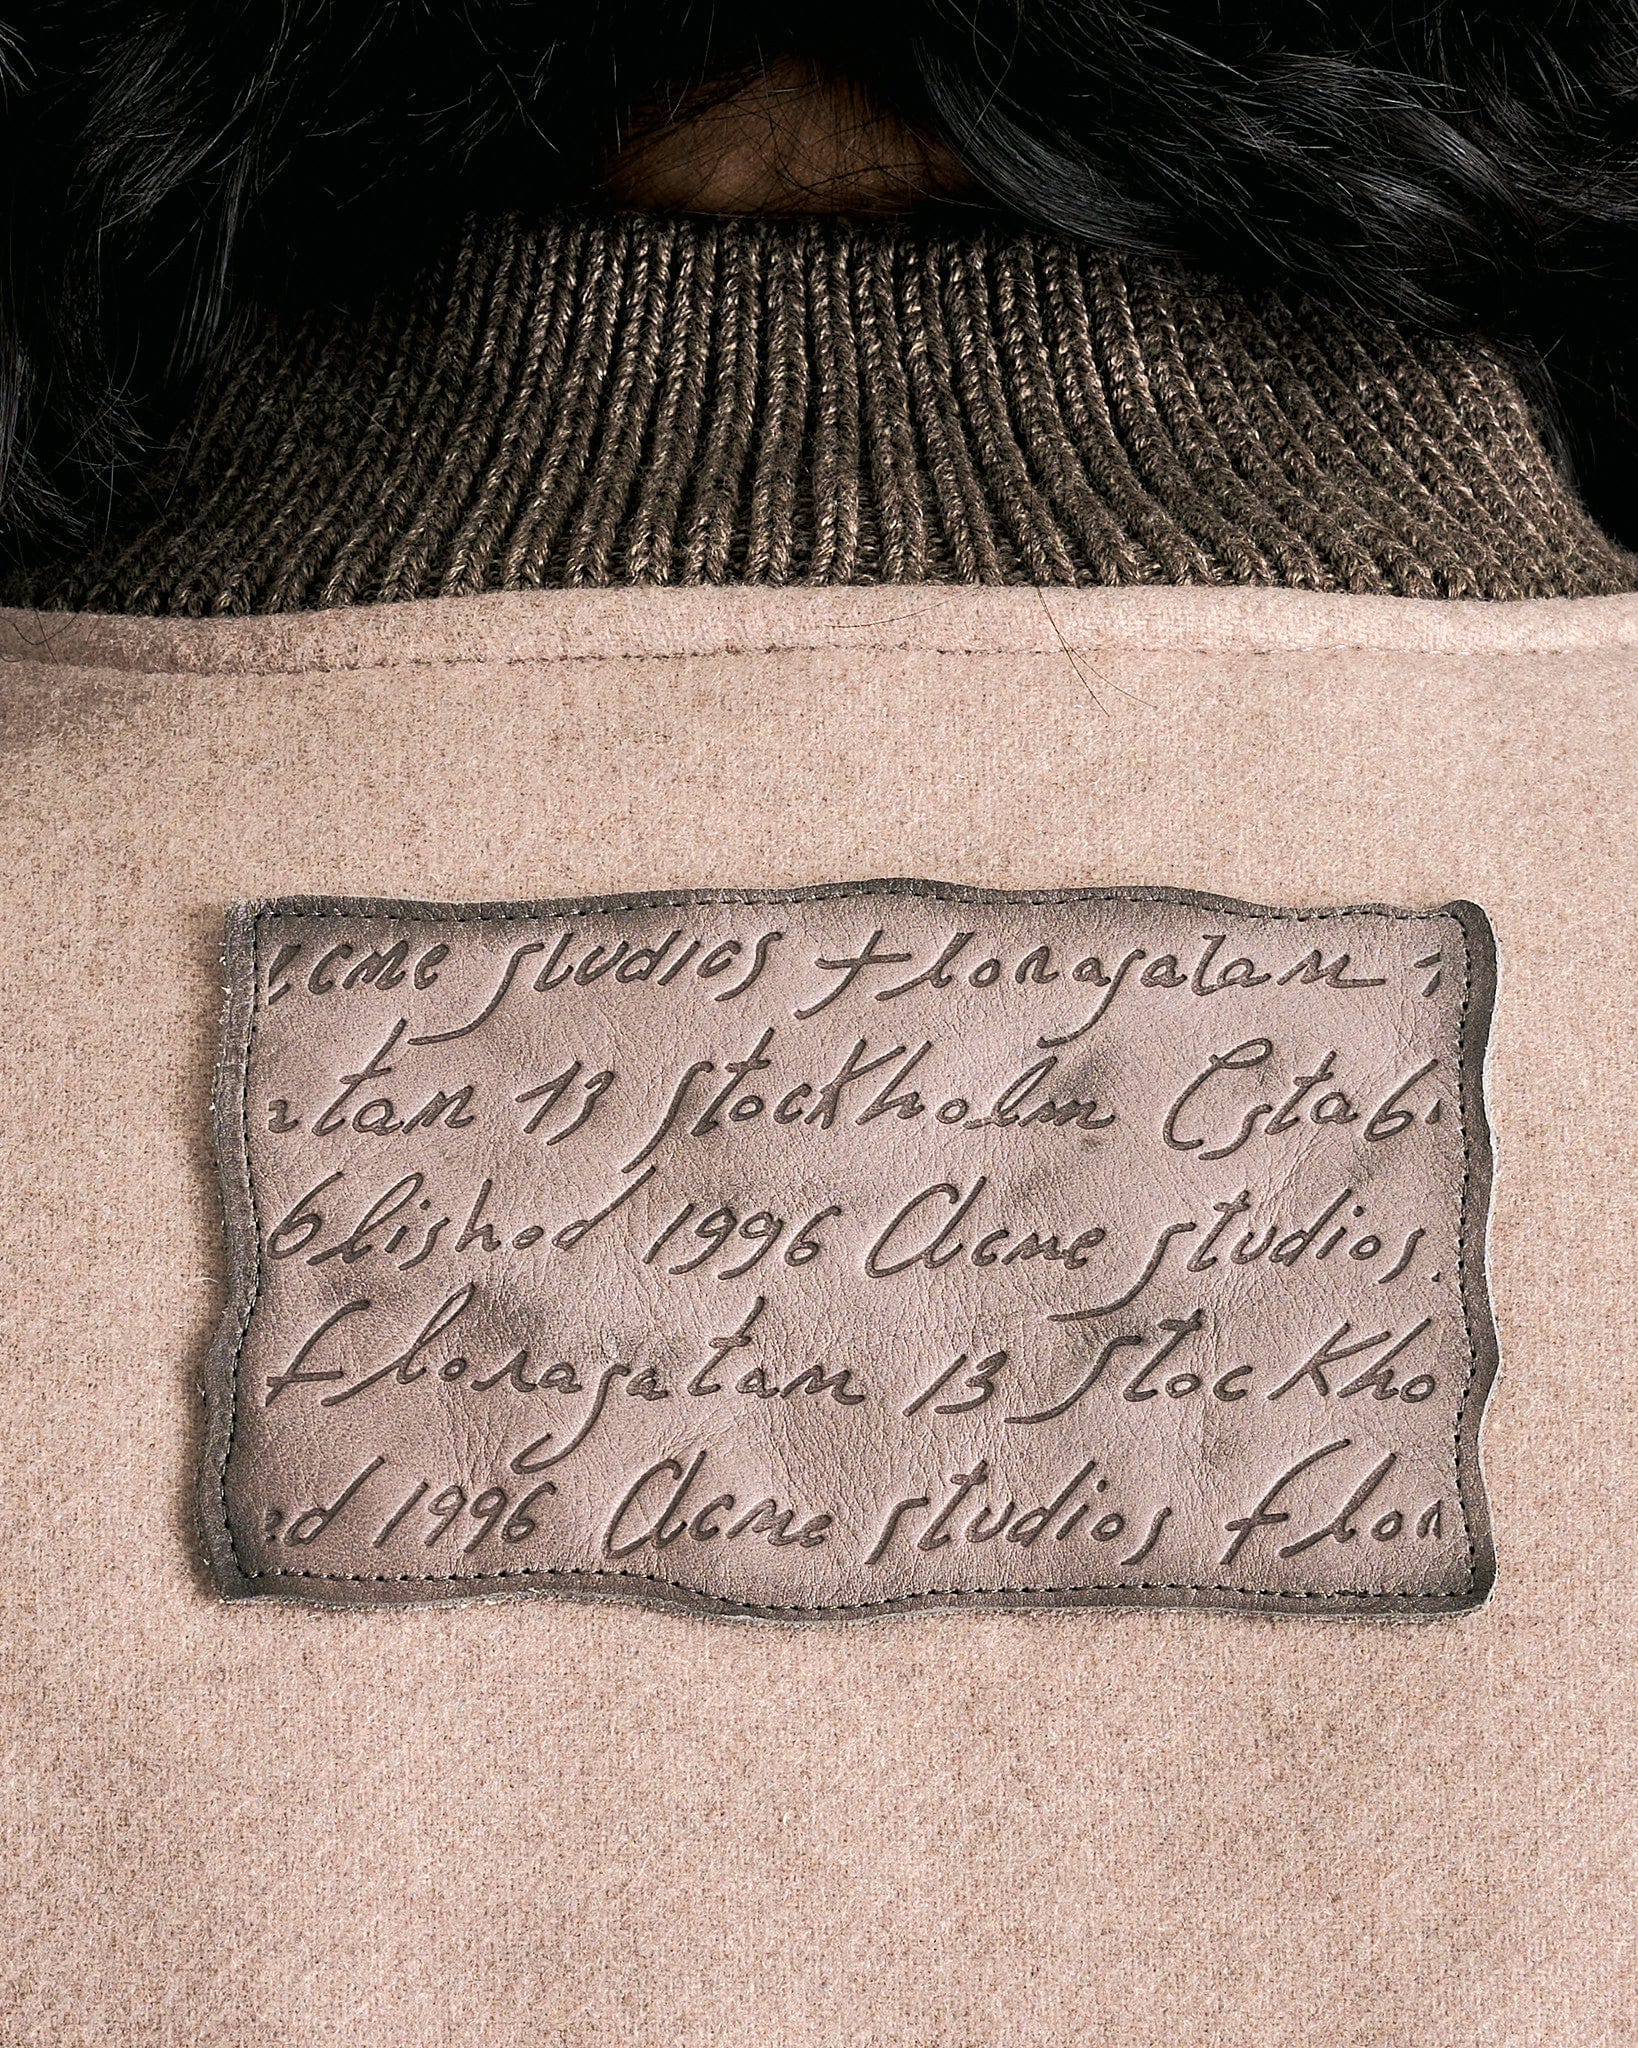 Acme studios Floragatan 1
atan 13 Stockholm Estab
blished 1996 Acme studios
Floragatan 13 Stockho
ed 1996 Acme studios Flor